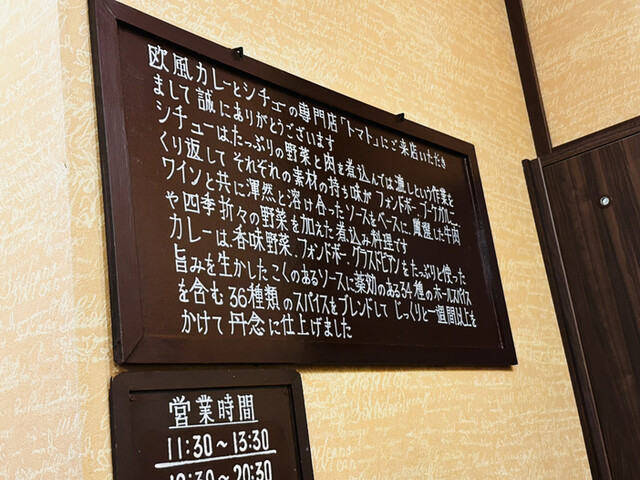 欧風カレーとシチューの専門店「トマト」にご来店いただき
まして誠にありがとうございます
シチューはたっぷりの野菜と肉を煮込んでは漉しという作業を
くり返してそれぞれの素材の持ち味が フォンドボー ブーケガルニ
ワインと共に渾然と溶け合ったソースをベースに、厳選した牛肉
や四季折々の野菜を加えた煮込み料理です
カレーは、香味野菜、フォンドボー グラスドビアンをたっぷりと使った
旨みを生かしたこくのあるソースに薬効のある34種のホールスパイス
を含む36種類のスパイスをブレンドして じっくりと一週間以上を
かけて丹念に仕上げました
営業時間
11:30〜13:30
20:30